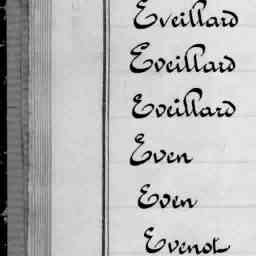 Eveillard
Eveillard
Eveillard
Even
Even
Evenot